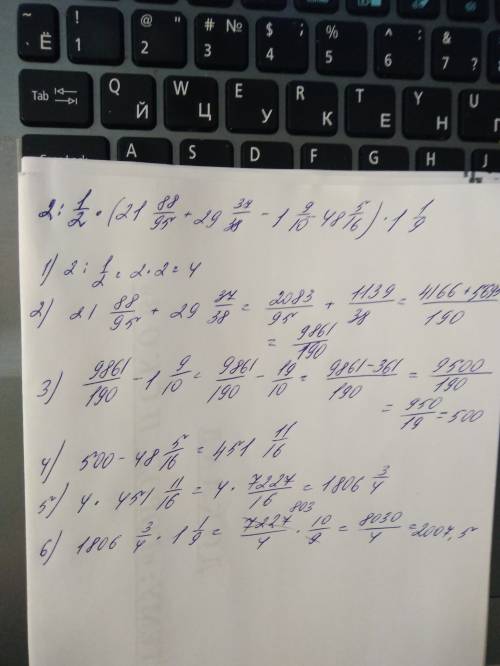 ~ Ё ! 1 @ " 2 # № 3 $ ; 4 % 5 ^ : 6 & 7 ?
Tab Q Й W Ц E У R К T Е Y Н U
A S D F G H J
2 : 1/2 · (21 88/95 + 29 37/38 - 1 9/10 48 5/16) · 1 1/9
1) 2 : 1/2 = 2 · 2 = 4
2) 21 88/95 + 29 37/38 = 2083/95 + 1139/38 = 4166 + 5695/190
= 9861/190
3) 9861/190 - 1 9/10 = 9861/190 - 19/10 = 9861-361/190 = 9500/190
= 950/19 = 500
4) 500 - 48 5/16 = 451 11/16
5) 4 · 451 11/16 = 4 · 7227/16 = 1806 3/4
6) 1806 3/4 · 1 1/9 = 7227/4 803 · 10/9 = 8030/4 = 2007,5